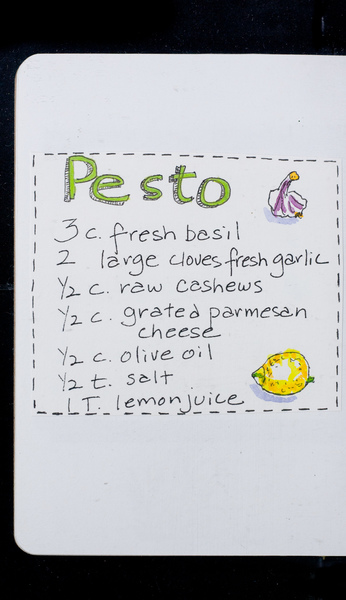 Pesto
3 c. fresh basil
2 large cloves fresh garlic
1/2 c. raw cashews
1/2 c. grated parmesan
cheese
1/2 c. olive oil
1/2 t. salt
1 T. lemon juice